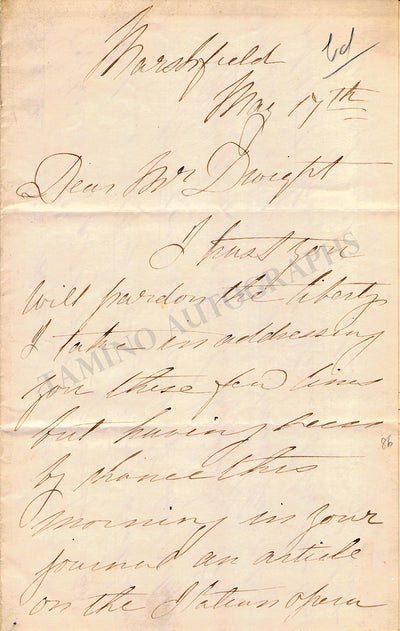 Marshfield
May 17th
Dear Mr Dwight
I trust you
will pardon the liberty
I take in addressing
you these few lines
but having seen
by chance this
morning in your
journal an article
on the Italian opera
86
TAMINO AUTOGRAPHS